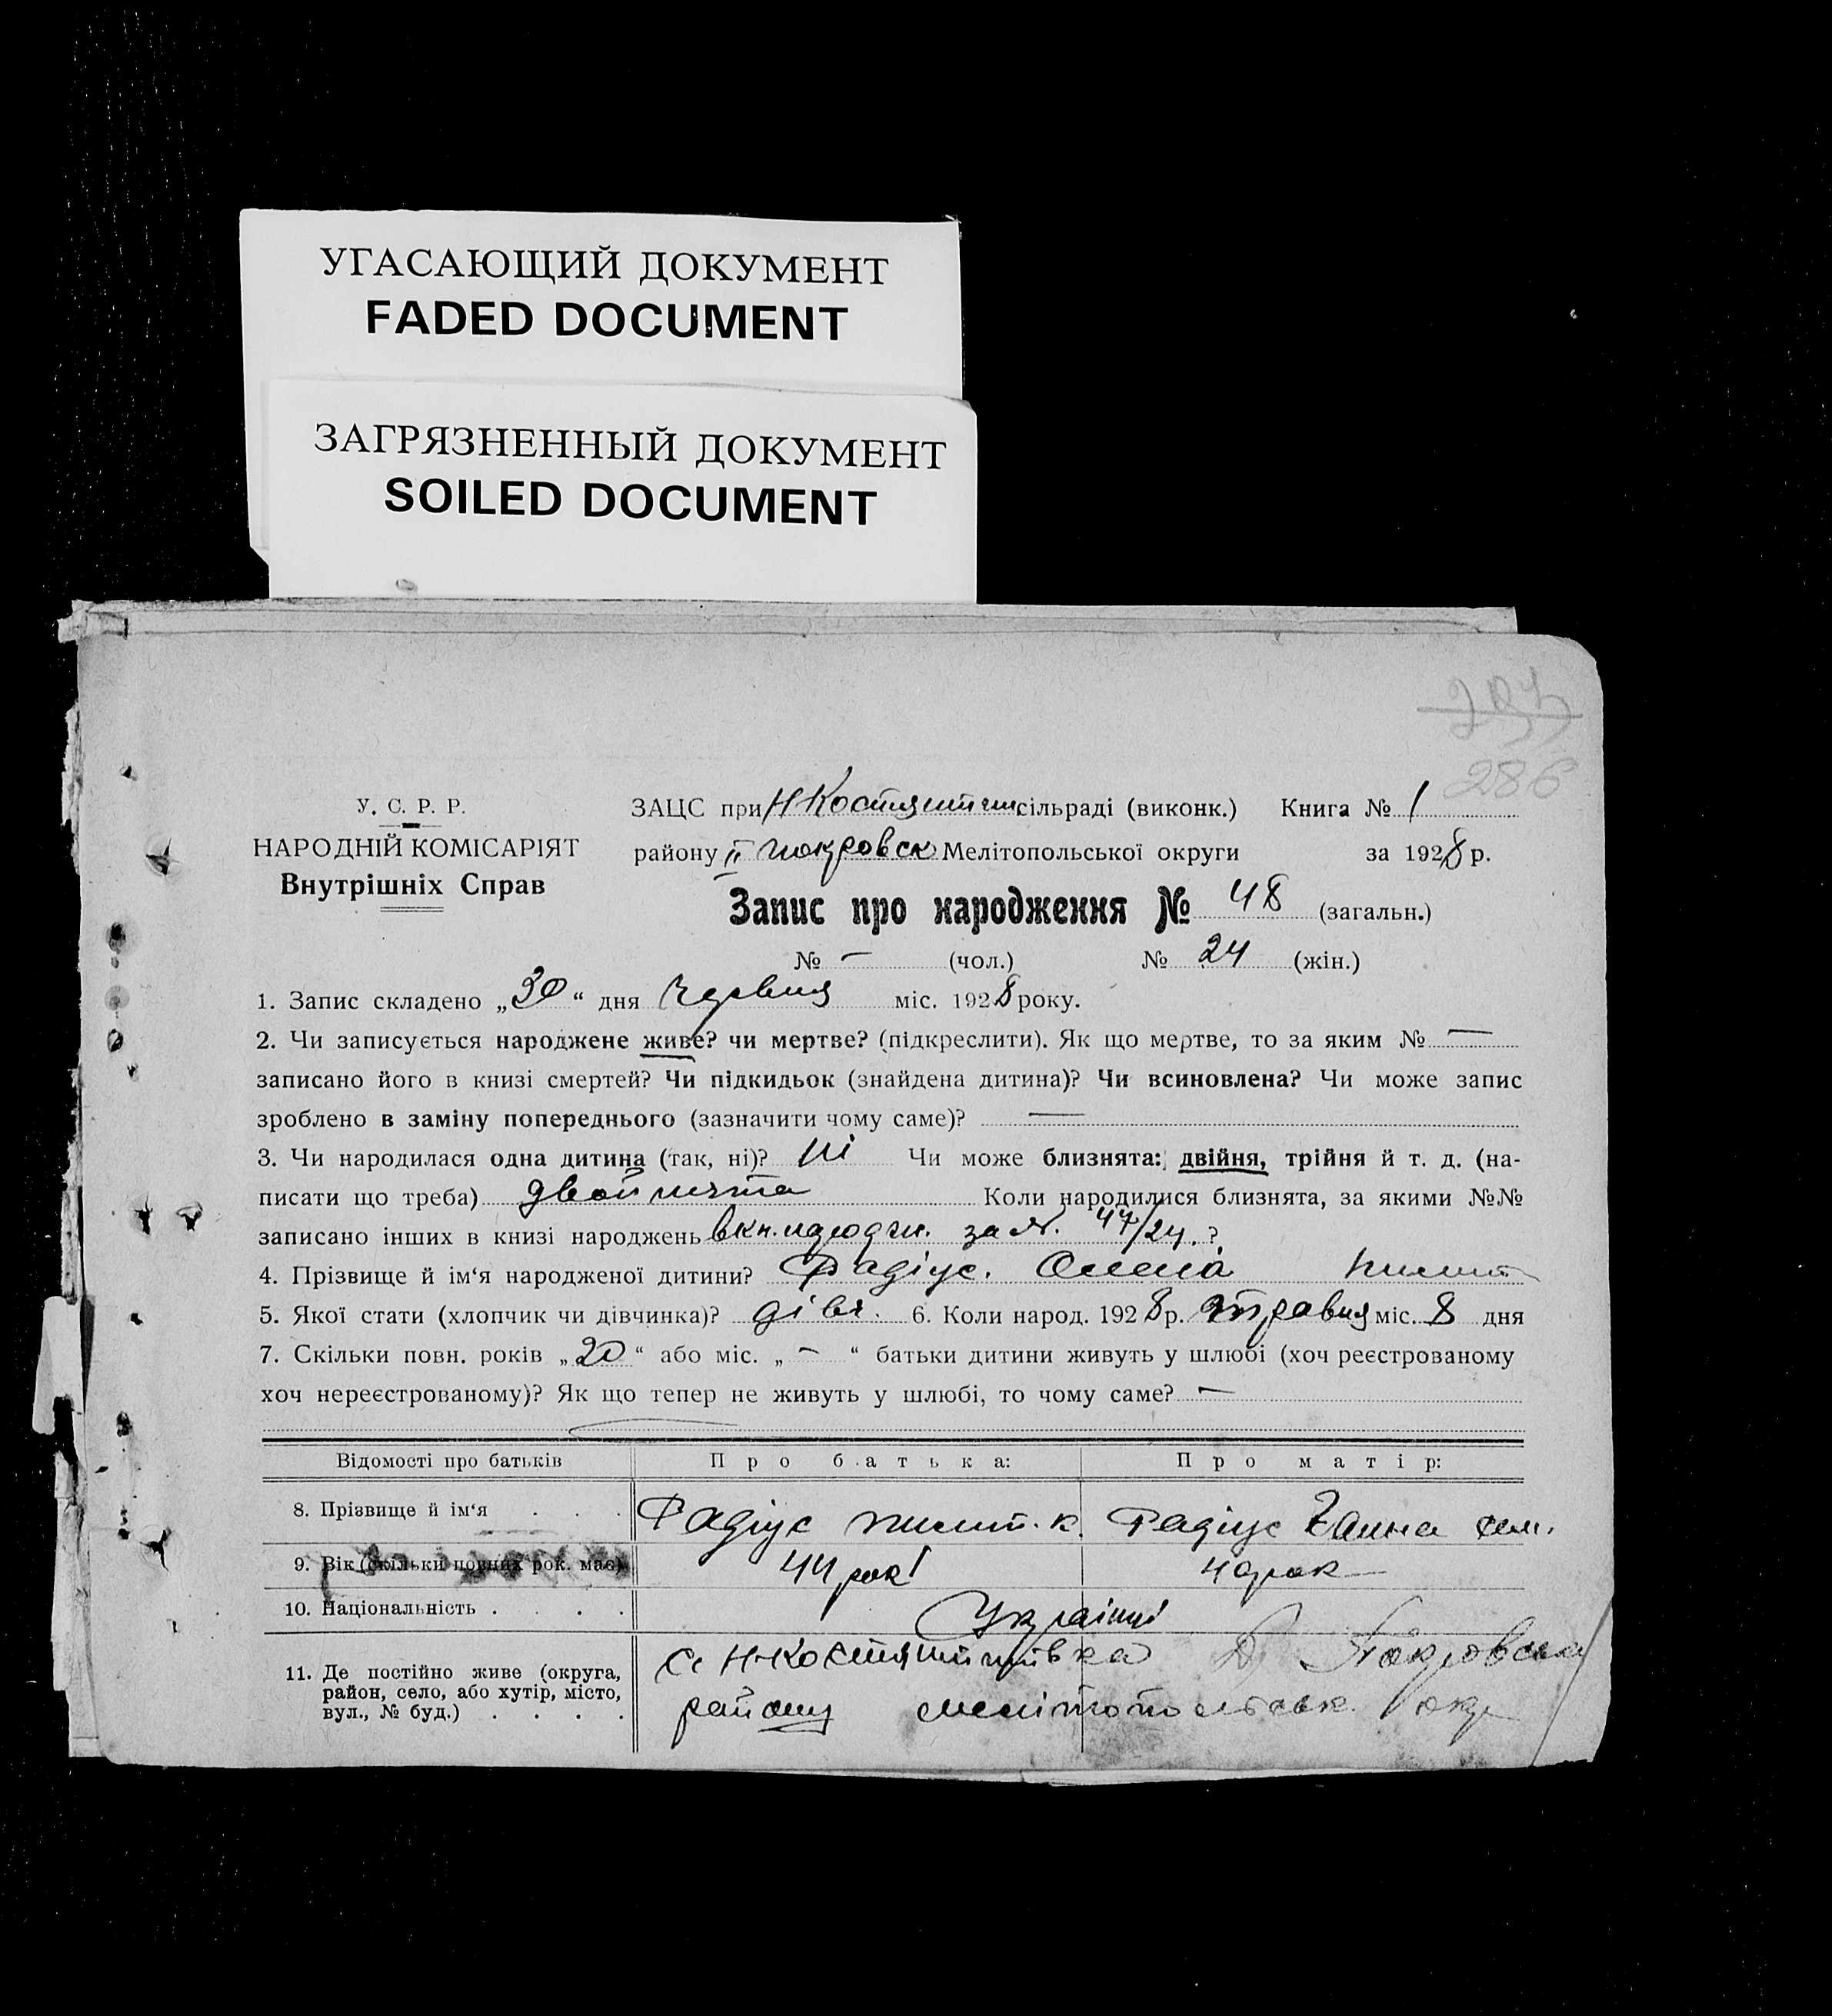 УГАСАЮЩИЙ ДОКУМЕНТ
FADED DOCUMENT
ЗАГРЯЗНЕННЫЙ ДОКУМЕНТ
SOILED DOCUMENT
286
У. С. Р. Р.
НАРОДНІЙ КОМІСАРІЯТ
Внутрішніх Справ
ЗАЦС при сільраді (виконк.) Книга № 1
району ІІ покровск Мелітопольської округи за 1928 р.
Запис про народження № 48 (загальн.)
№ — (чол.) № 24 (жін.)
1. Запис складено „30“ дня Червня міс. 1928 року.
2. Чи записується народжене живе? чи мертве? (підкреслити). Як що мертве, то за яким № —
записано його в книзі смертей? Чи підкидьок (знайдена дитина)? Чи всиновлена? Чи може запис
зроблено в заміну попереднього (зазначити чому саме)? —
3. Чи народилася одна дитина (так, ні)? ні Чи може близнята: двійня, трійня й т. д. (на-
писати що треба) Коли народилися близнята, за якими №№
записано інших в книзі народжень за №. 47/24. ?
4. Прізвище й ім‘я народженої дитини? Фадіус. Олена
5. Якої стати (хлопчик чи дівчинка)? дівч. 6. Коли народ. 1928 р. травня міс. 8 дня
7. Скільки повн. років „20“ або міс. „—“ батьки дитини живуть у шлюбі (хоч реєстрованому
хоч нереєстрованому)? Як що тепер не живуть у шлюбі, то чому саме? —
Відомості про батьків Про батька: Про матір:
8. Прізвище й ім‘я . . . Фадіус к. Фадіус Ганна
9. Вік (скільки повних рок. має) 44 рокі 40 рок
10. Національність . . . . Українці
11. Де постійно живе (округа, район, село, або хутір, місто, вул., № буд.) . . . . с. Н-Костянтинівка Покровська
району мелітопольськ. окр